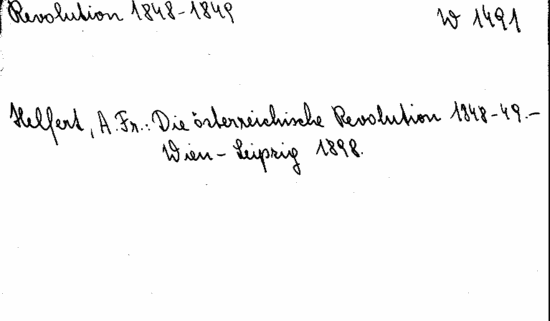 Revolution 1848-1849 W 1491
Helfert, A. Fr.: Die österreichische Revolution 1848-49.-
Wien - Leipzig 1898.